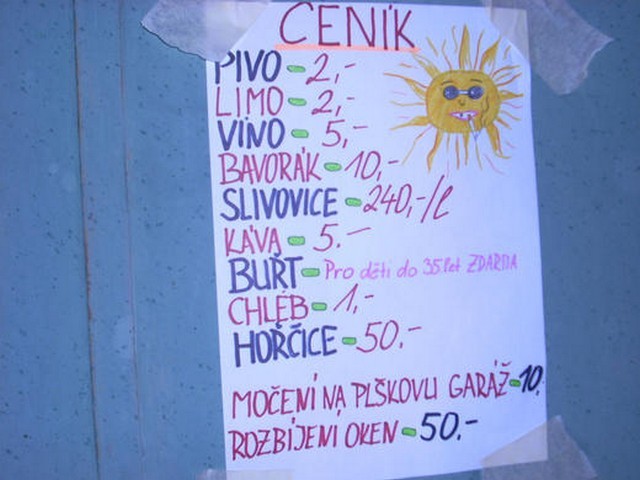 CENÍK
PIVO - 2,-
LIMO - 2,-
VÍNO - 5,-
BAVORÁK - 10,-
SLIVOVICE - 240,-/l
KÁVA - 5.-
BUŘT - Pro děti do 35 let ZDARMA
CHLÉB - 1,-
HOŘČICE - 50.-
MOČENÍ NA PLŠKOVU GARÁŽ - 10,
ROZBÍJENÍ OKEN - 50.-